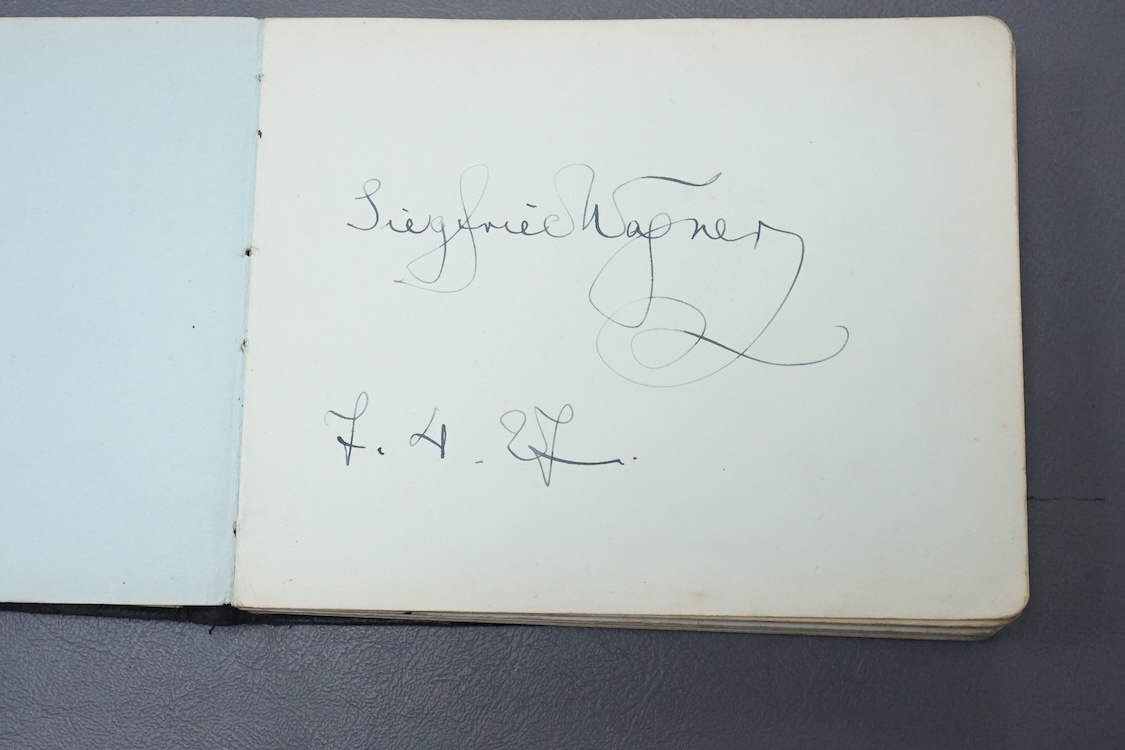 Siegfried Wagner
7. 4. 27.